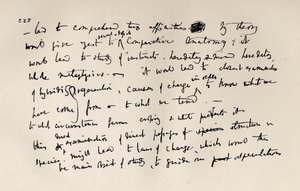 227
led to comprehend true affinities. My theory
would give zest to recent & Fossil Comparative Anatomy, & it
would lead to study of instincts, heredity & mind heredity,
whole metaphysics. — it would lead to closest examination
of hybridity & generation, causes of change in order to know what we
have come from & to what we tend. —
to what circumstances favour crossing & what prevents it —
this & examination of direct passages of species structure in
species, might lead to laws of change, which would then
be main object of study, to guide our past speculations